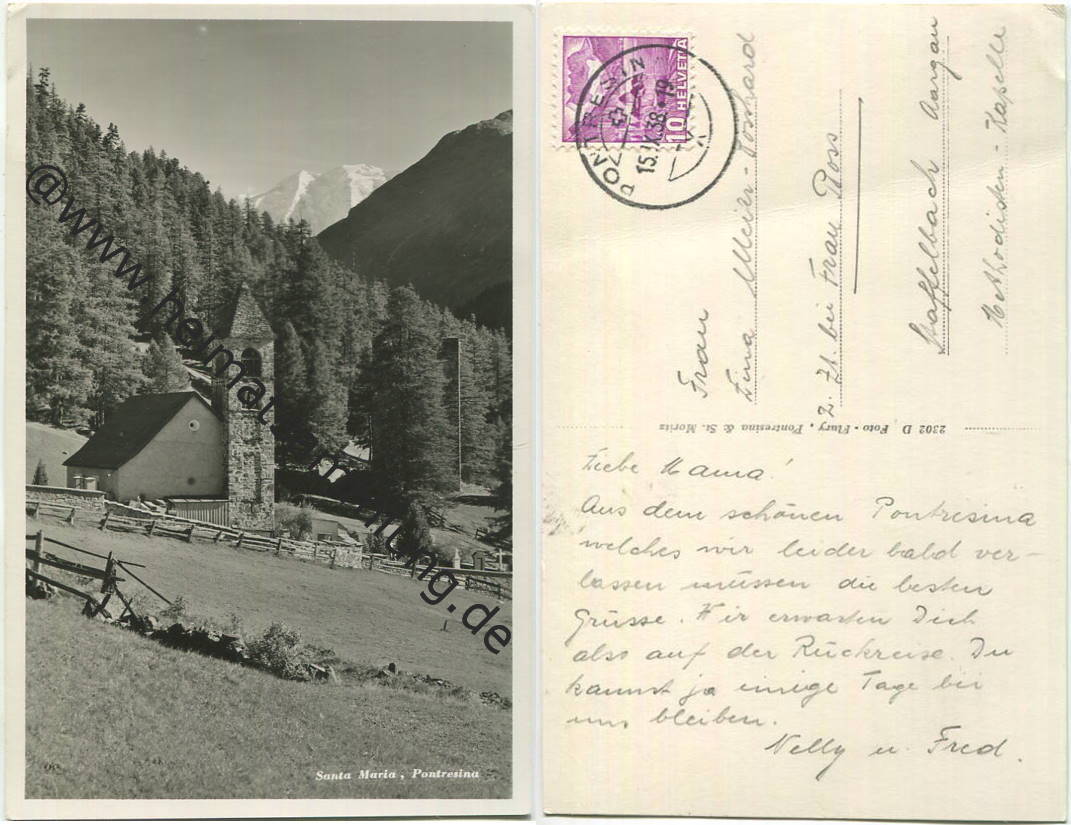 @www.heimat-sammlung.de
Santa Maria, Pontresina
HELVETIA
10
PONTRESINA
15.IX.38.-19
Frau
Lina Meier-Bosshard
z. Zt. bei Frau Ross
Staffelbach Aargau
Methodisten-Kapelle
2302 D Foto-Flury, Pontresina & St. Moritz
Liebe Mama!
Aus dem schönen Pontresina
welches wir leider bald ver-
lassen müssen die besten
Grüsse. Wir erwarten Dich
also auf der Rückreise. Du
kannst ja einige Tage bei
uns bleiben.
Nelly u. Fred.